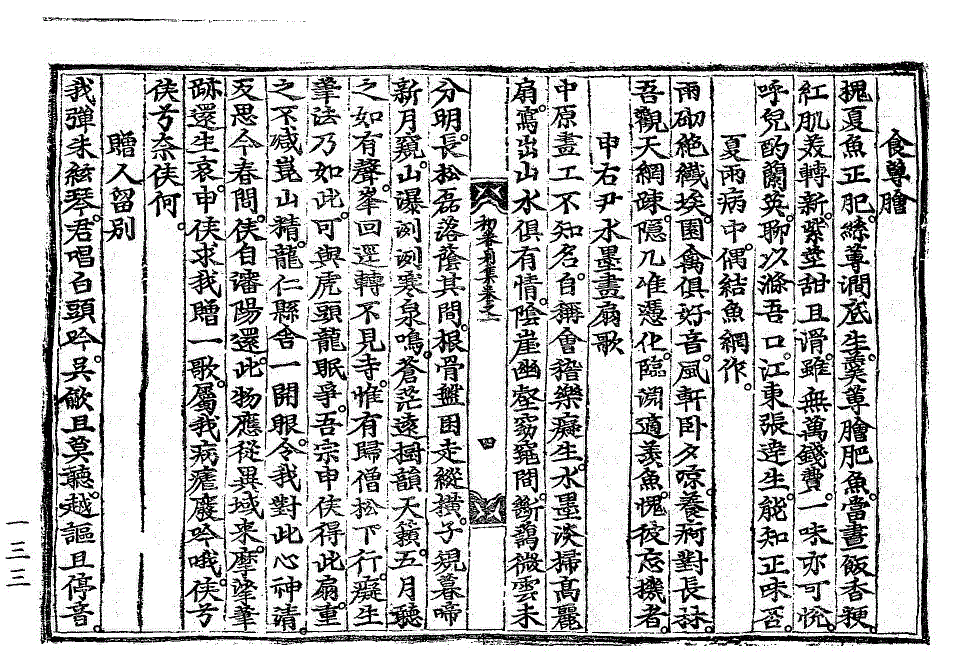 食蓴膾
槐夏魚正肥。絲蓴澗底生。羹蓴膾肥魚。當晝飯香粳。
紅肌羨轉新。紫莖甜且滑。雖無萬錢費。一味亦可悅。
呼兒酌蘭英。聊以滌吾口。江東張達生。能知正味否。
夏雨病中。偶結魚網作。
雨砌絶纖埃。園禽俱好音。風軒臥夕涼。養痾對長林。
吾觀天網疎。隱几唯憑化。臨淵適羨魚。愧彼忘機者。
申右尹水墨畫扇歌
中原畫工不知名。自稱會稽樂癡生。水墨淡掃高麗
扇。寫出山水俱有情。陰崖幽壑窈窕間。斷靄微雲未
初菴集卷之一
四
分明。長松磊落蔭其間。根骨盤囷走縱橫。子䂓暮啼
新月窺。山瀑洌洌寒泉鳴。蒼茫遠樹韻天籟。五月聽
之如有聲。峯回逕轉不見寺。惟有歸僧松下行。癡生
筆法乃如此。可與虎頭龍眠爭。吾宗申侯得此扇。重
之不減崑山精。龍仁縣舍一開眼。令我對此心神淸。
反思今春問侯自瀋陽還。此物應從異域來。摩挲筆
跡還生哀。申侯求我贈一歌。屬我病瘧廢吟哦。侯兮
侯兮奈侯何。
贈人留別
我彈朱絃琴。君唱白頭吟。吳歈且莫聽。越謳且停音。
一三三